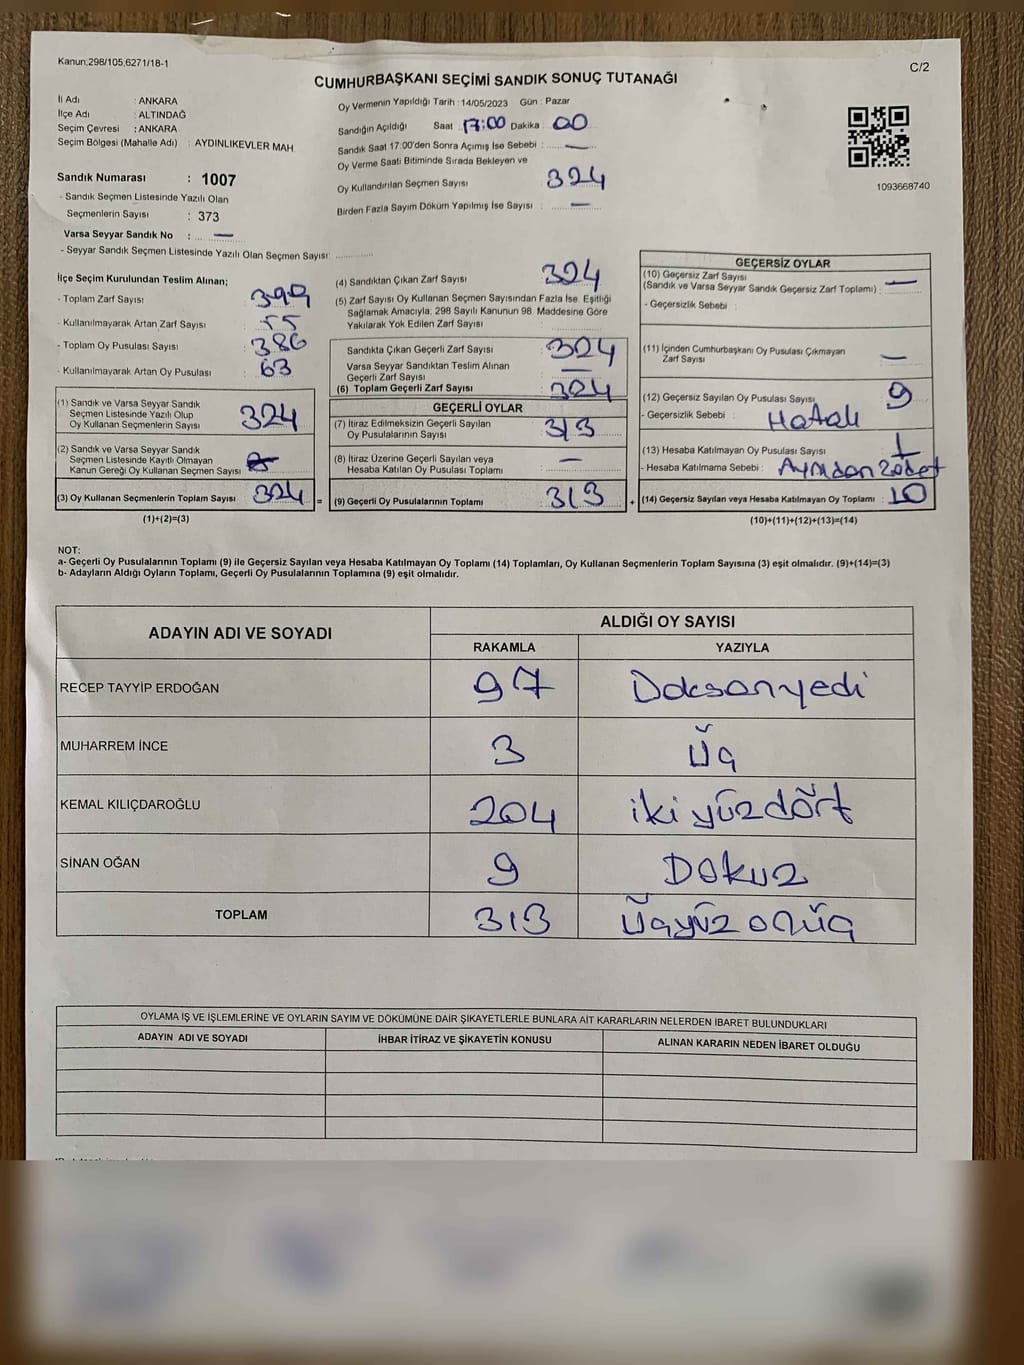 Kanun;298/105,6271/18-1
C/2
CUMHURBAŞKANI SEÇİMİ SANDIK SONUÇ TUTANAĞI
İl Adı : ANKARA
İlçe Adı : ALTINDAĞ
Seçim Çevresi : ANKARA
Seçim Bölgesi (Mahalle Adı) : AYDINLIKEVLER MAH.
Sandık Numarası : 1007
- Sandık Seçmen Listesinde Yazılı Olan
Seçmenlerin Sayısı : 373
Varsa Seyyar Sandık No : —
- Seyyar Sandık Seçmen Listesinde Yazılı Olan Seçmen Sayısı
Oy Vermenin Yapıldığı Tarih : 14/05/2023 Gün : Pazar
Sandığın Açıldığı Saat : 17:00 Dakika : 00
Sandık Saat 17:00'den Sonra Açımış İse Sebebi : —
Oy Verme Saati Bitiminde Sırada Bekleyen ve
Oy Kullandırılan Seçmen Sayısı 324
Birden Fazla Sayım Döküm Yapılmış İse Sayısı : —
1093668740
İlçe Seçim Kurulundan Teslim Alınan;
- Toplam Zarf Sayısı 399
- Kullanılmayarak Artan Zarf Sayısı 55
- Toplam Oy Pusulası Sayısı 386
- Kullanılmayarak Artan Oy Pusulası 63
(1) Sandık ve Varsa Seyyar Sandık
Seçmen Listesinde Yazılı Olup
Oy Kullanan Seçmenlerin Sayısı 324
(2) Sandık ve Varsa Seyyar Sandık
Seçmen Listesinde Kayıtlı Olmayan
Kanun Gereği Oy Kullanan Seçmen Sayısı
(3) Oy Kullanan Seçmenlerin Toplam Sayısı 324 =
(1)+(2)=(3)
(4) Sandıktan Çıkan Zarf Sayısı 324
(5) Zarf Sayısı Oy Kullanan Seçmen Sayısından Fazla İse, Eşitliği
Sağlamak Amacıyla; 298 Sayılı Kanunun 98. Maddesine Göre
Yakılarak Yok Edilen Zarf Sayısı :
Sandıkta Çıkan Geçerli Zarf Sayısı 324
Varsa Seyyar Sandıktan Teslim Alınan
Geçerli Zarf Sayısı —
(6) Toplam Geçerli Zarf Sayısı 324
GEÇERLİ OYLAR
(7) İtiraz Edilmeksizin Geçerli Sayılan
Oy Pusulalarının Sayısı 313
(8) İtiraz Üzerine Geçerli Sayılan veya
Hesaba Katılan Oy Pusulası Toplamı —
(9) Geçerli Oy Pusulalarının Toplamı 313 +
GEÇERSİZ OYLAR
(10) Geçersiz Zarf Sayısı
(Sandık ve Varsa Seyyar Sandık Geçersiz Zarf Toplamı) : —
- Geçersizlik Sebebi :
(11) İçinden Cumhurbaşkanı Oy Pusulası Çıkmayan
Zarf Sayısı —
(12) Geçersiz Sayılan Oy Pusulası Sayısı 9
- Geçersizlik Sebebi : Hatalı
(13) Hesaba Katılmayan Oy Pusulası Sayısı 1
- Hesaba Katılmama Sebebi : Aynıdan 2 adet
(14) Geçersiz Sayılan veya Hesaba Katılmayan Oy Toplamı : 10
(10)+(11)+(12)+(13)=(14)
NOT:
a- Geçerli Oy Pusulalarının Toplamı (9) ile Geçersiz Sayılan veya Hesaba Katılmayan Oy Toplamı (14) Toplamları, Oy Kullanan Seçmenlerin Toplam Sayısına (3) eşit olmalıdır. (9)+(14)=(3)
b- Adayların Aldığı Oyların Toplamı, Geçerli Oy Pusulalarının Toplamına (9) eşit olmalıdır.
ADAYIN ADI VE SOYADI
ALDIĞI OY SAYISI
RAKAMLA YAZIYLA
RECEP TAYYİP ERDOĞAN 97 Doksanyedi
MUHARREM İNCE 3 Üç
KEMAL KILIÇDAROĞLU 204 iki yüzdört
SİNAN OĞAN 9 Dokuz
TOPLAM 313 Üçyüz onüç
OYLAMA İŞ VE İŞLEMLERİNE VE OYLARIN SAYIM VE DÖKÜMÜNE DAİR ŞİKAYETLERLE BUNLARA AİT KARARLARIN NELERDEN İBARET BULUNDUKLARI
ADAYIN ADI VE SOYADI İHBAR İTİRAZ VE ŞİKAYETİN KONUSU ALINAN KARARIN NEDEN İBARET OLDUĞU